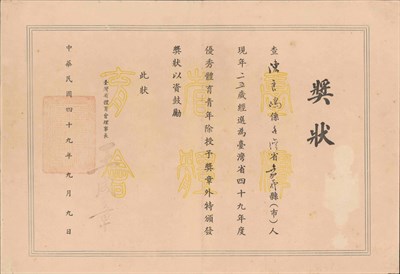 獎狀
查 係台灣省嘉義縣(市)人
現年二五歲經選為臺灣省四十九年度
優秀體育青年除授予獎章外特頒發
獎狀以資鼓勵
此狀
臺灣省體育會理事長
中華民國四十九年九月九日